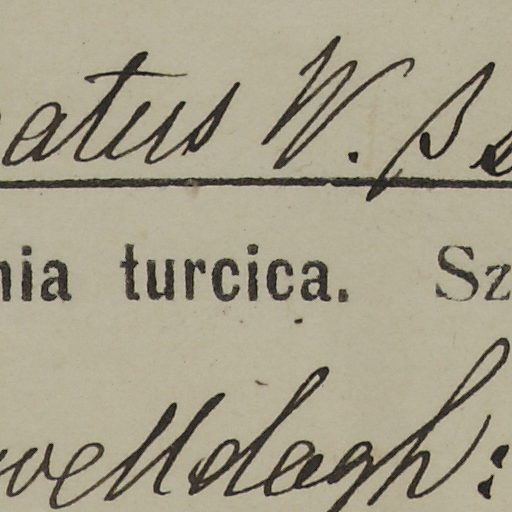 atus W. β s
nia turcica. Sz
welldagh: